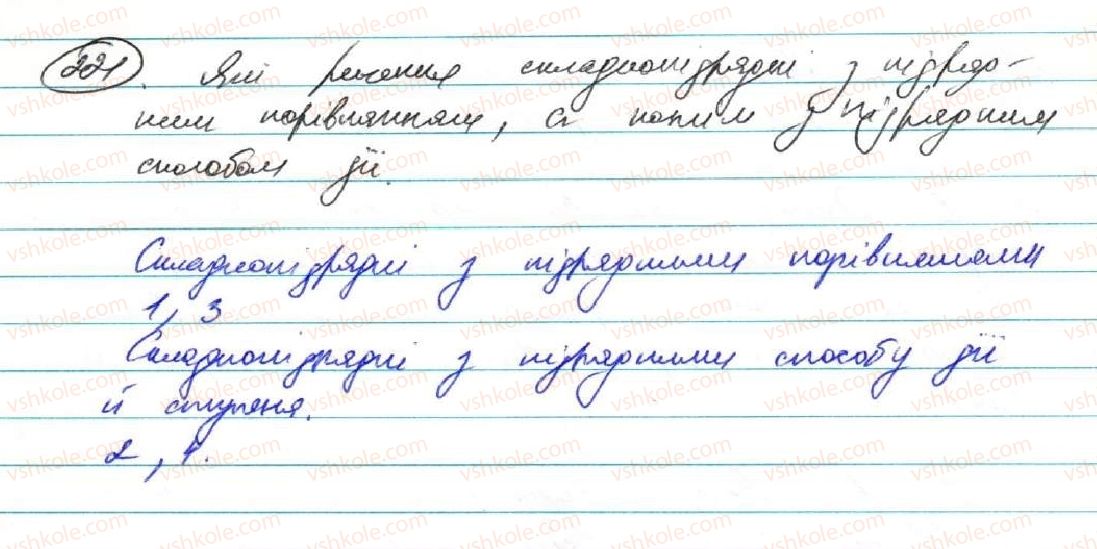 221. Які речення складнопідрядні з підряд-
ним порівнянням, а якими з підрядним
способом дії.
Складнопідрядні з підрядними порівняннями
1, 3
Складнопідрядні з підрядними способу дії
й ступеня.
2, 4.
vshkole.com